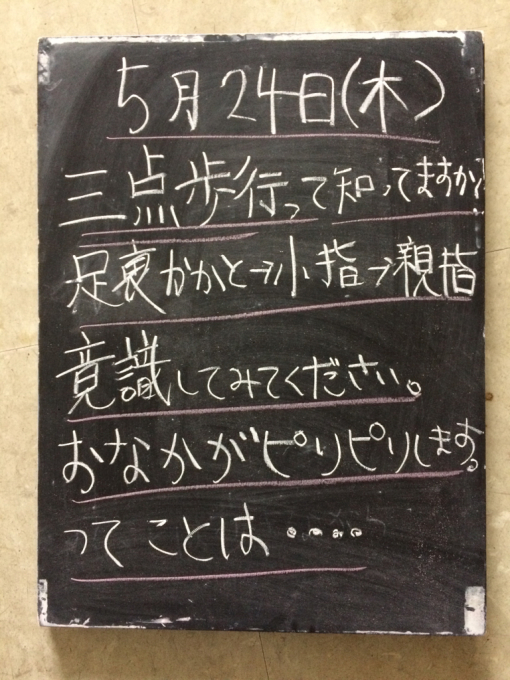 5月24日(木)
三点歩行って知ってますか?
足裏かかと→小指→親指
意識してみてください。
おなかがピリピリします。
ってことは・・・・